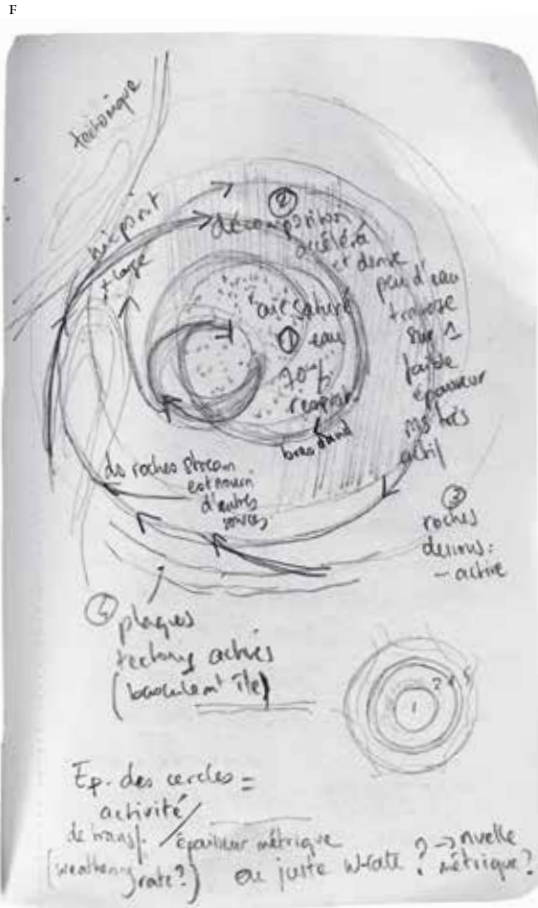 F
tectonique
②
décomposition
accéléré
et donc
peu d'eau
traverse
sur 1
faible
épaisseur
ms très
actif
air saturé
① eau
70%
ds roches stream
est nourri
d'autres
sources
③
roches
dessous:
- active
④ plaques
tectonq actives
(basculemt île)
1
2
Ep. des cercles =
activité
de transf. / épaisseur métrique
(weathering rate?) ou juste w-rate ? → nvelle
métrique?